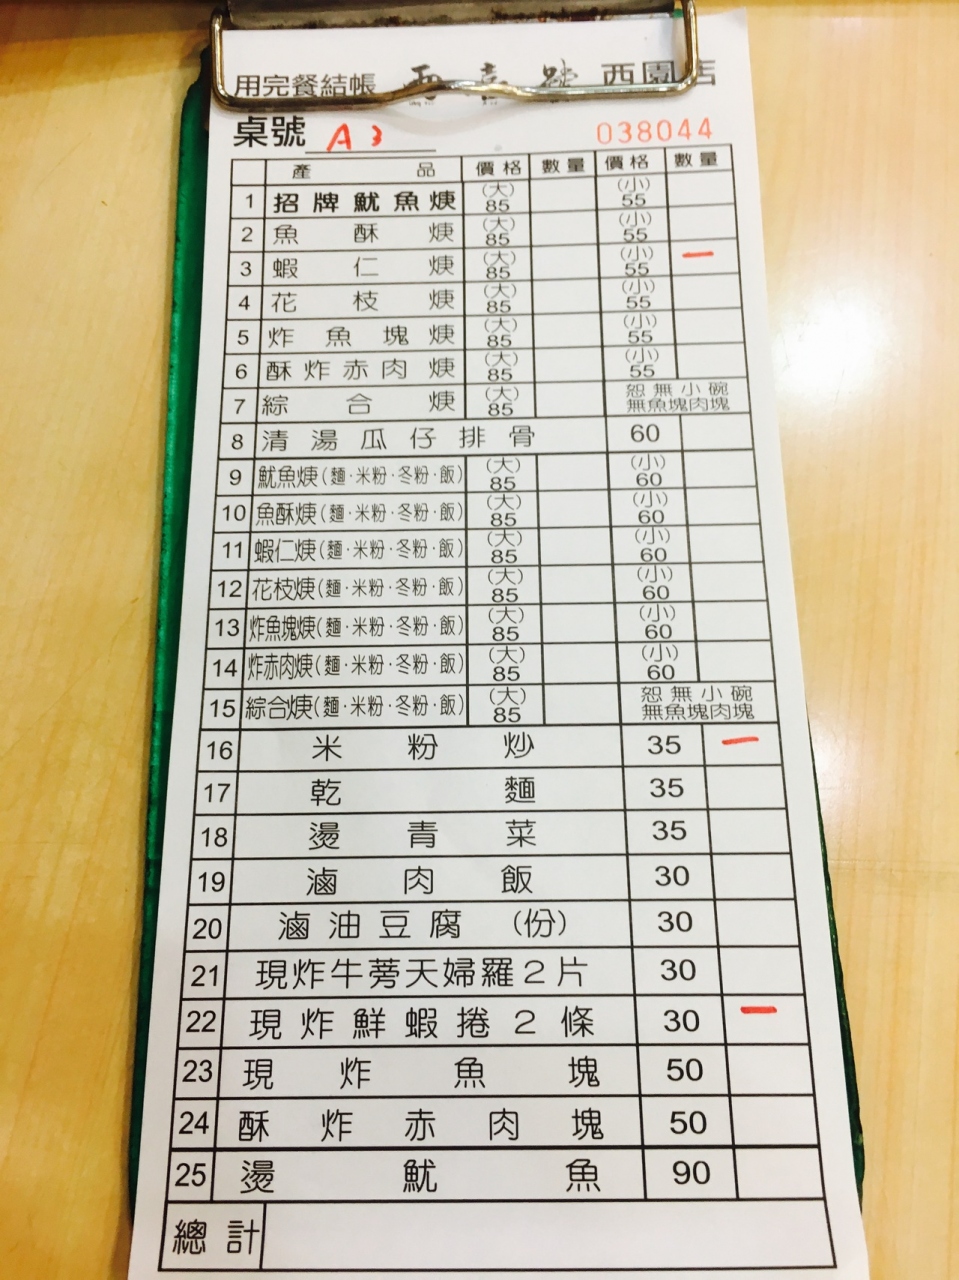 用完餐結帳 兩喜號 西園店
桌號 A3 038044
產品 價格 數量 價格 數量
1 招牌魷魚焿 (大)85 (小)55
2 魚酥焿 (大)85 (小)55
3 蝦仁焿 (大)85 (小)55 一
4 花枝焿 (大)85 (小)55
5 炸魚塊焿 (大)85 (小)55
6 酥炸赤肉焿 (大)85 (小)55
7 綜合焿 (大)85 恕無小碗 無魚塊肉塊
8 清湯瓜仔排骨 60
9 魷魚焿(麵·米粉·冬粉·飯) (大)85 (小)60
10 魚酥焿(麵·米粉·冬粉·飯) (大)85 (小)60
11 蝦仁焿(麵·米粉·冬粉·飯) (大)85 (小)60
12 花枝焿(麵·米粉·冬粉·飯) (大)85 (小)60
13 炸魚塊焿(麵·米粉·冬粉·飯) (大)85 (小)60
14 炸赤肉焿(麵·米粉·冬粉·飯) (大)85 (小)60
15 綜合焿(麵·米粉·冬粉·飯) (大)85 恕無小碗 無魚塊肉塊
16 米粉炒 35 一
17 乾麵 35
18 燙青菜 35
19 滷肉飯 30
20 滷油豆腐 (份) 30
21 現炸牛蒡天婦羅2片 30
22 現炸鮮蝦捲2條 30 一
23 現炸魚塊 50
24 酥炸赤肉塊 50
25 燙魷魚 90
總計